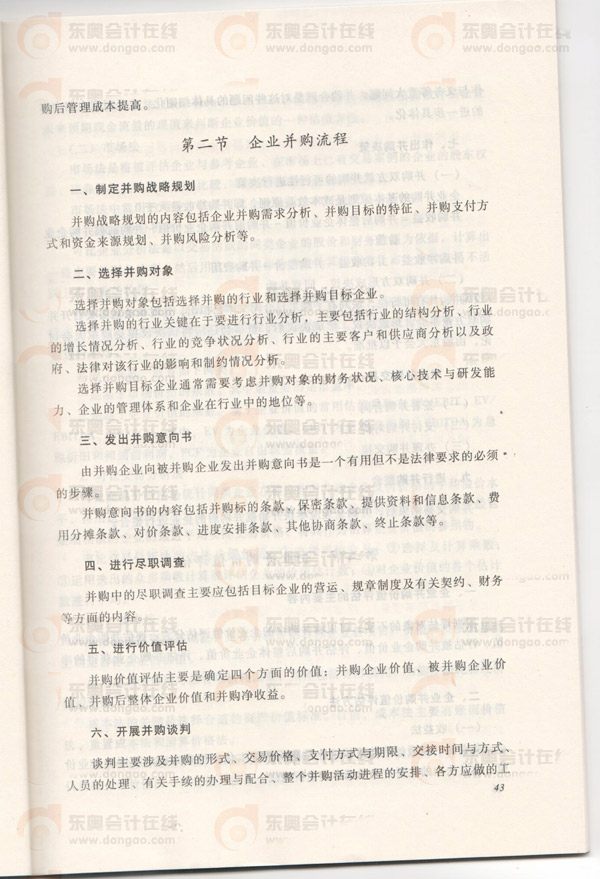 购后管理成本提高。
第二节 企业并购流程
一、制定并购战略规划
并购战略规划的内容包括企业并购需求分析、并购目标的特征、并购支付方
式和资金来源规划、并购风险分析等。
二、选择并购对象
选择并购对象包括选择并购的行业和选择并购目标企业。
选择并购的行业关键在于要进行行业分析，主要包括行业的结构分析、行业
的增长情况分析、行业的竞争状况分析、行业的主要客户和供应商分析以及政
府、法律对该行业的影响和制约情况分析。
选择并购目标企业通常需要考虑并购对象的财务状况、核心技术与研发能
力、企业的管理体系和企业在行业中的地位等。
三、发出并购意向书
由并购企业向被并购企业发出并购意向书是一个有用但不是法律要求的必须
的步骤。
并购意向书的内容包括并购标的条款、保密条款、提供资料和信息条款、费
用分摊条款、对价条款、进度安排条款、其他协商条款、终止条款等。
四、进行尽职调查
并购中的尽职调查主要应包括目标企业的营运、规章制度及有关契约、财务
等方面的内容。
五、进行价值评估
并购价值评估主要是确定四个方面的价值：并购企业价值、被并购企业价
值、并购后整体企业价值和并购净收益。
六、开展并购谈判
谈判主要涉及并购的形式、交易价格、支付方式与期限、交接时间与方式、
人员的处理、有关手续的办理与配合、整个并购活动进程的安排、各方应做的工
43
东奥会计在线
www.dongao.com